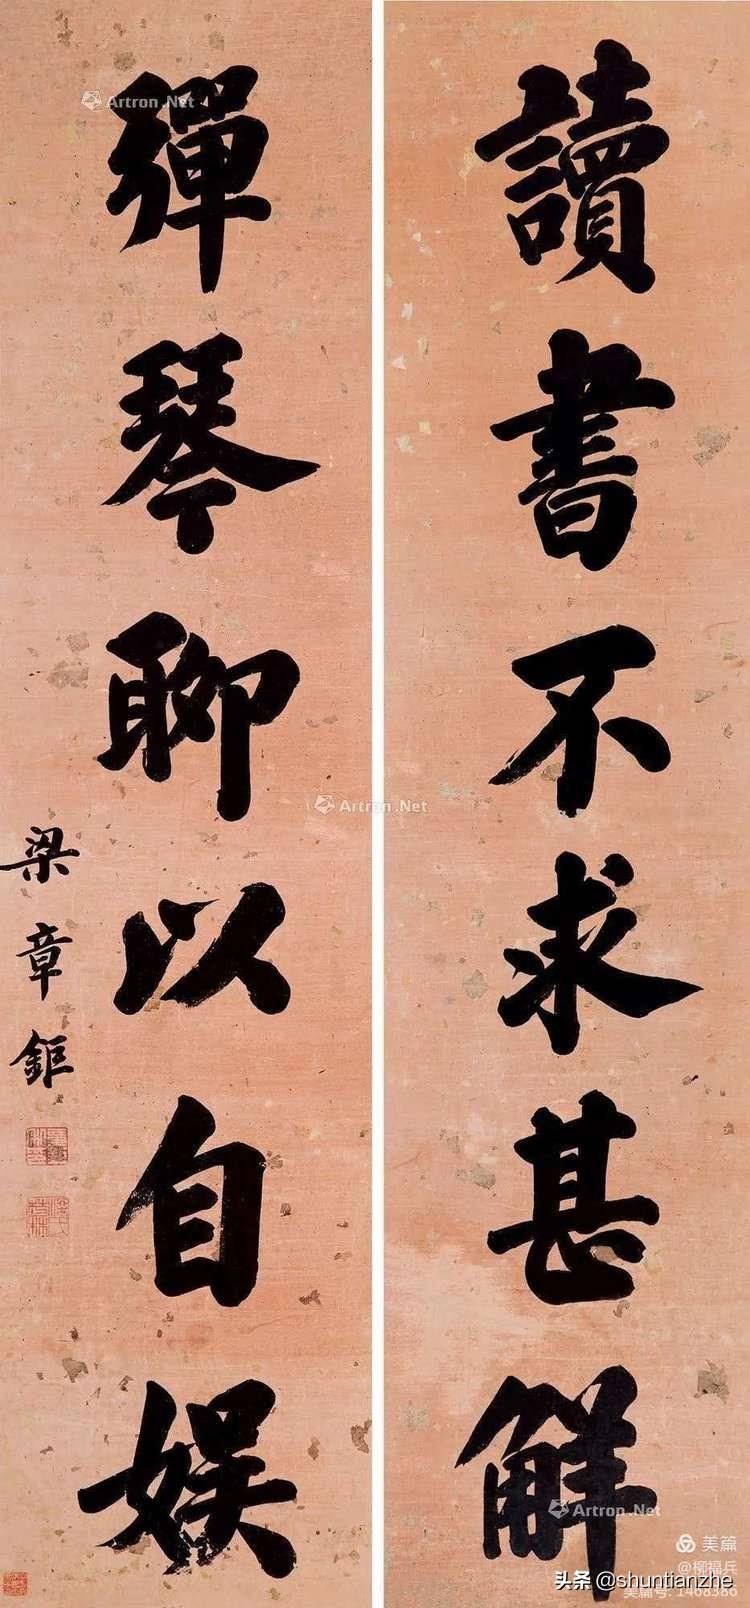 讀書不求甚解
彈琴聊以自娱
梁章鉅
Artron.Net
Artron.Net
Artron.Net
美篇
@柳福兵
美篇号：1468386
头条@shuntianzhe